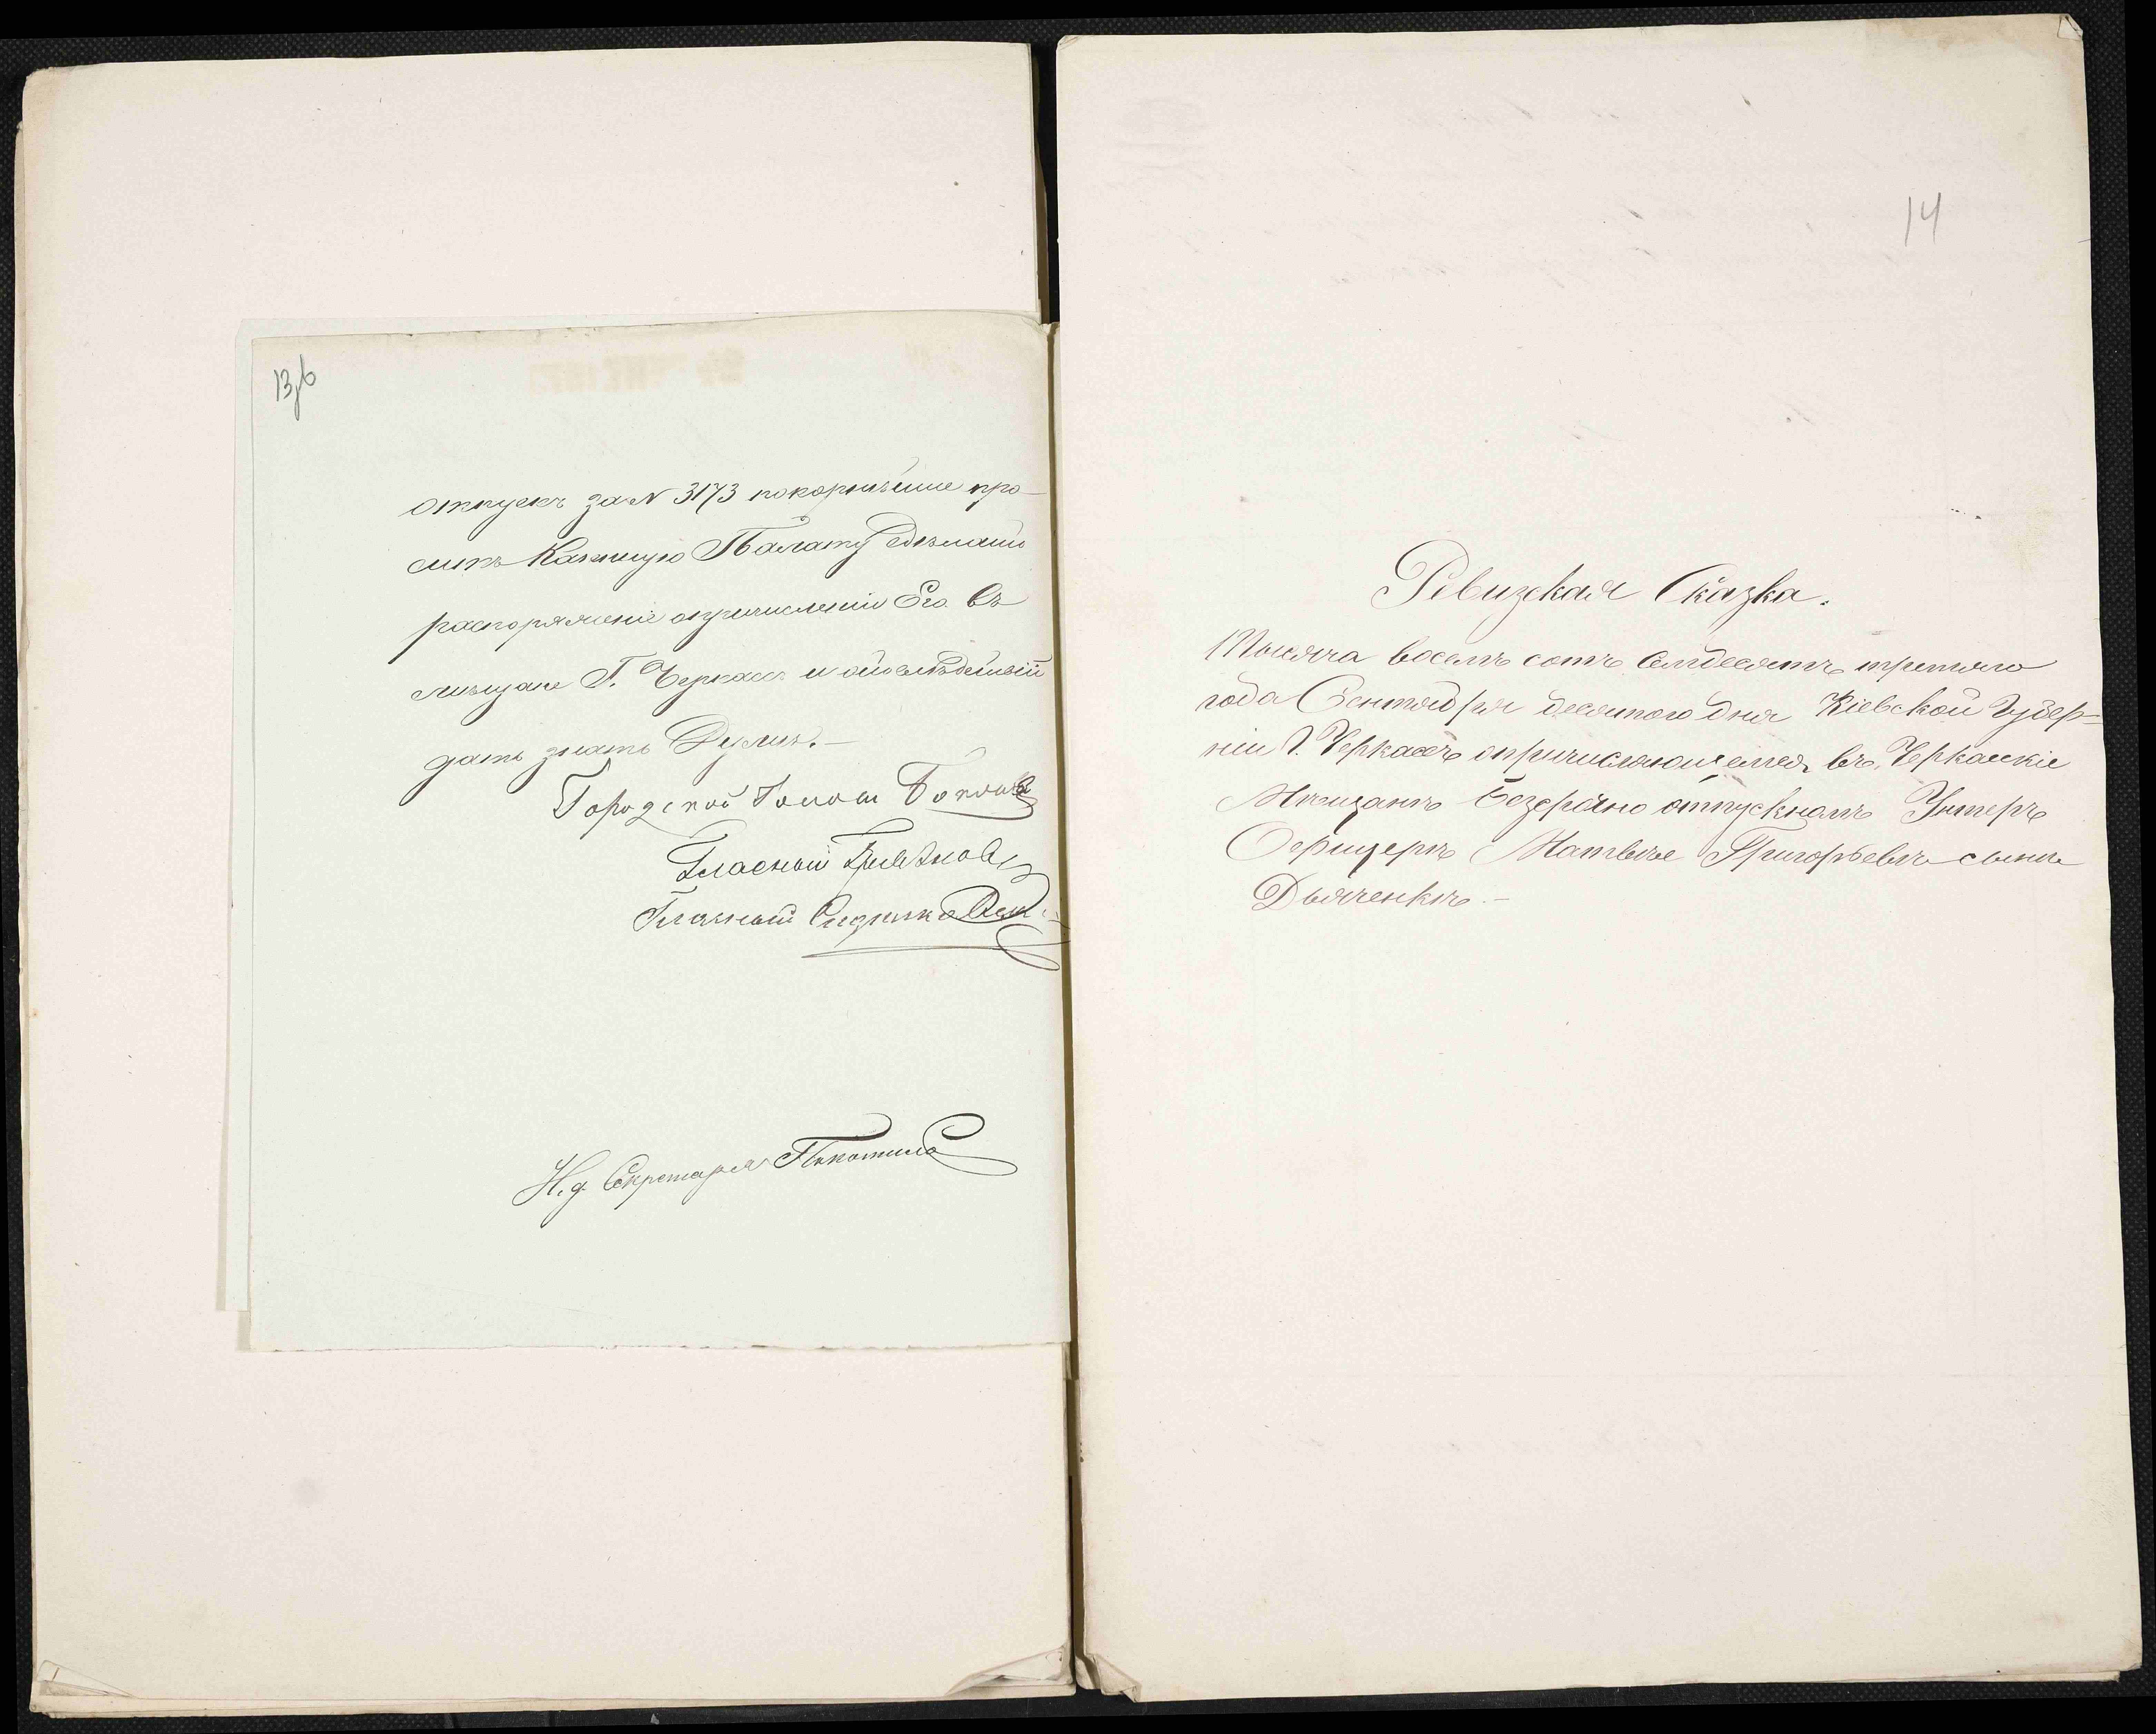 13об
отпускъ за N 3173 покорнѣйше про-
ситъ Казенную Палату сдѣлать
распоряженіе опричисленіи Его въ
мѣщане Г. Черкассъ и опослѣдующій
дать знать Думѣ.-
Городской Голова
Гласный
Гласный
И. д. Секретаря
14
Ревизская Сказка.
Тысяча восемь сотъ Семдесятъ третьяго
года Сентября десятого дня Кіевской Губер-
ніи Г. Черкассъ опричисляющемся въ Черкаскіе
Мѣщанъ безсрочно отпускномъ Унтеръ
Офицеръ Матвѣе Григорьевъ сынъ
Дьяченкѣ.-